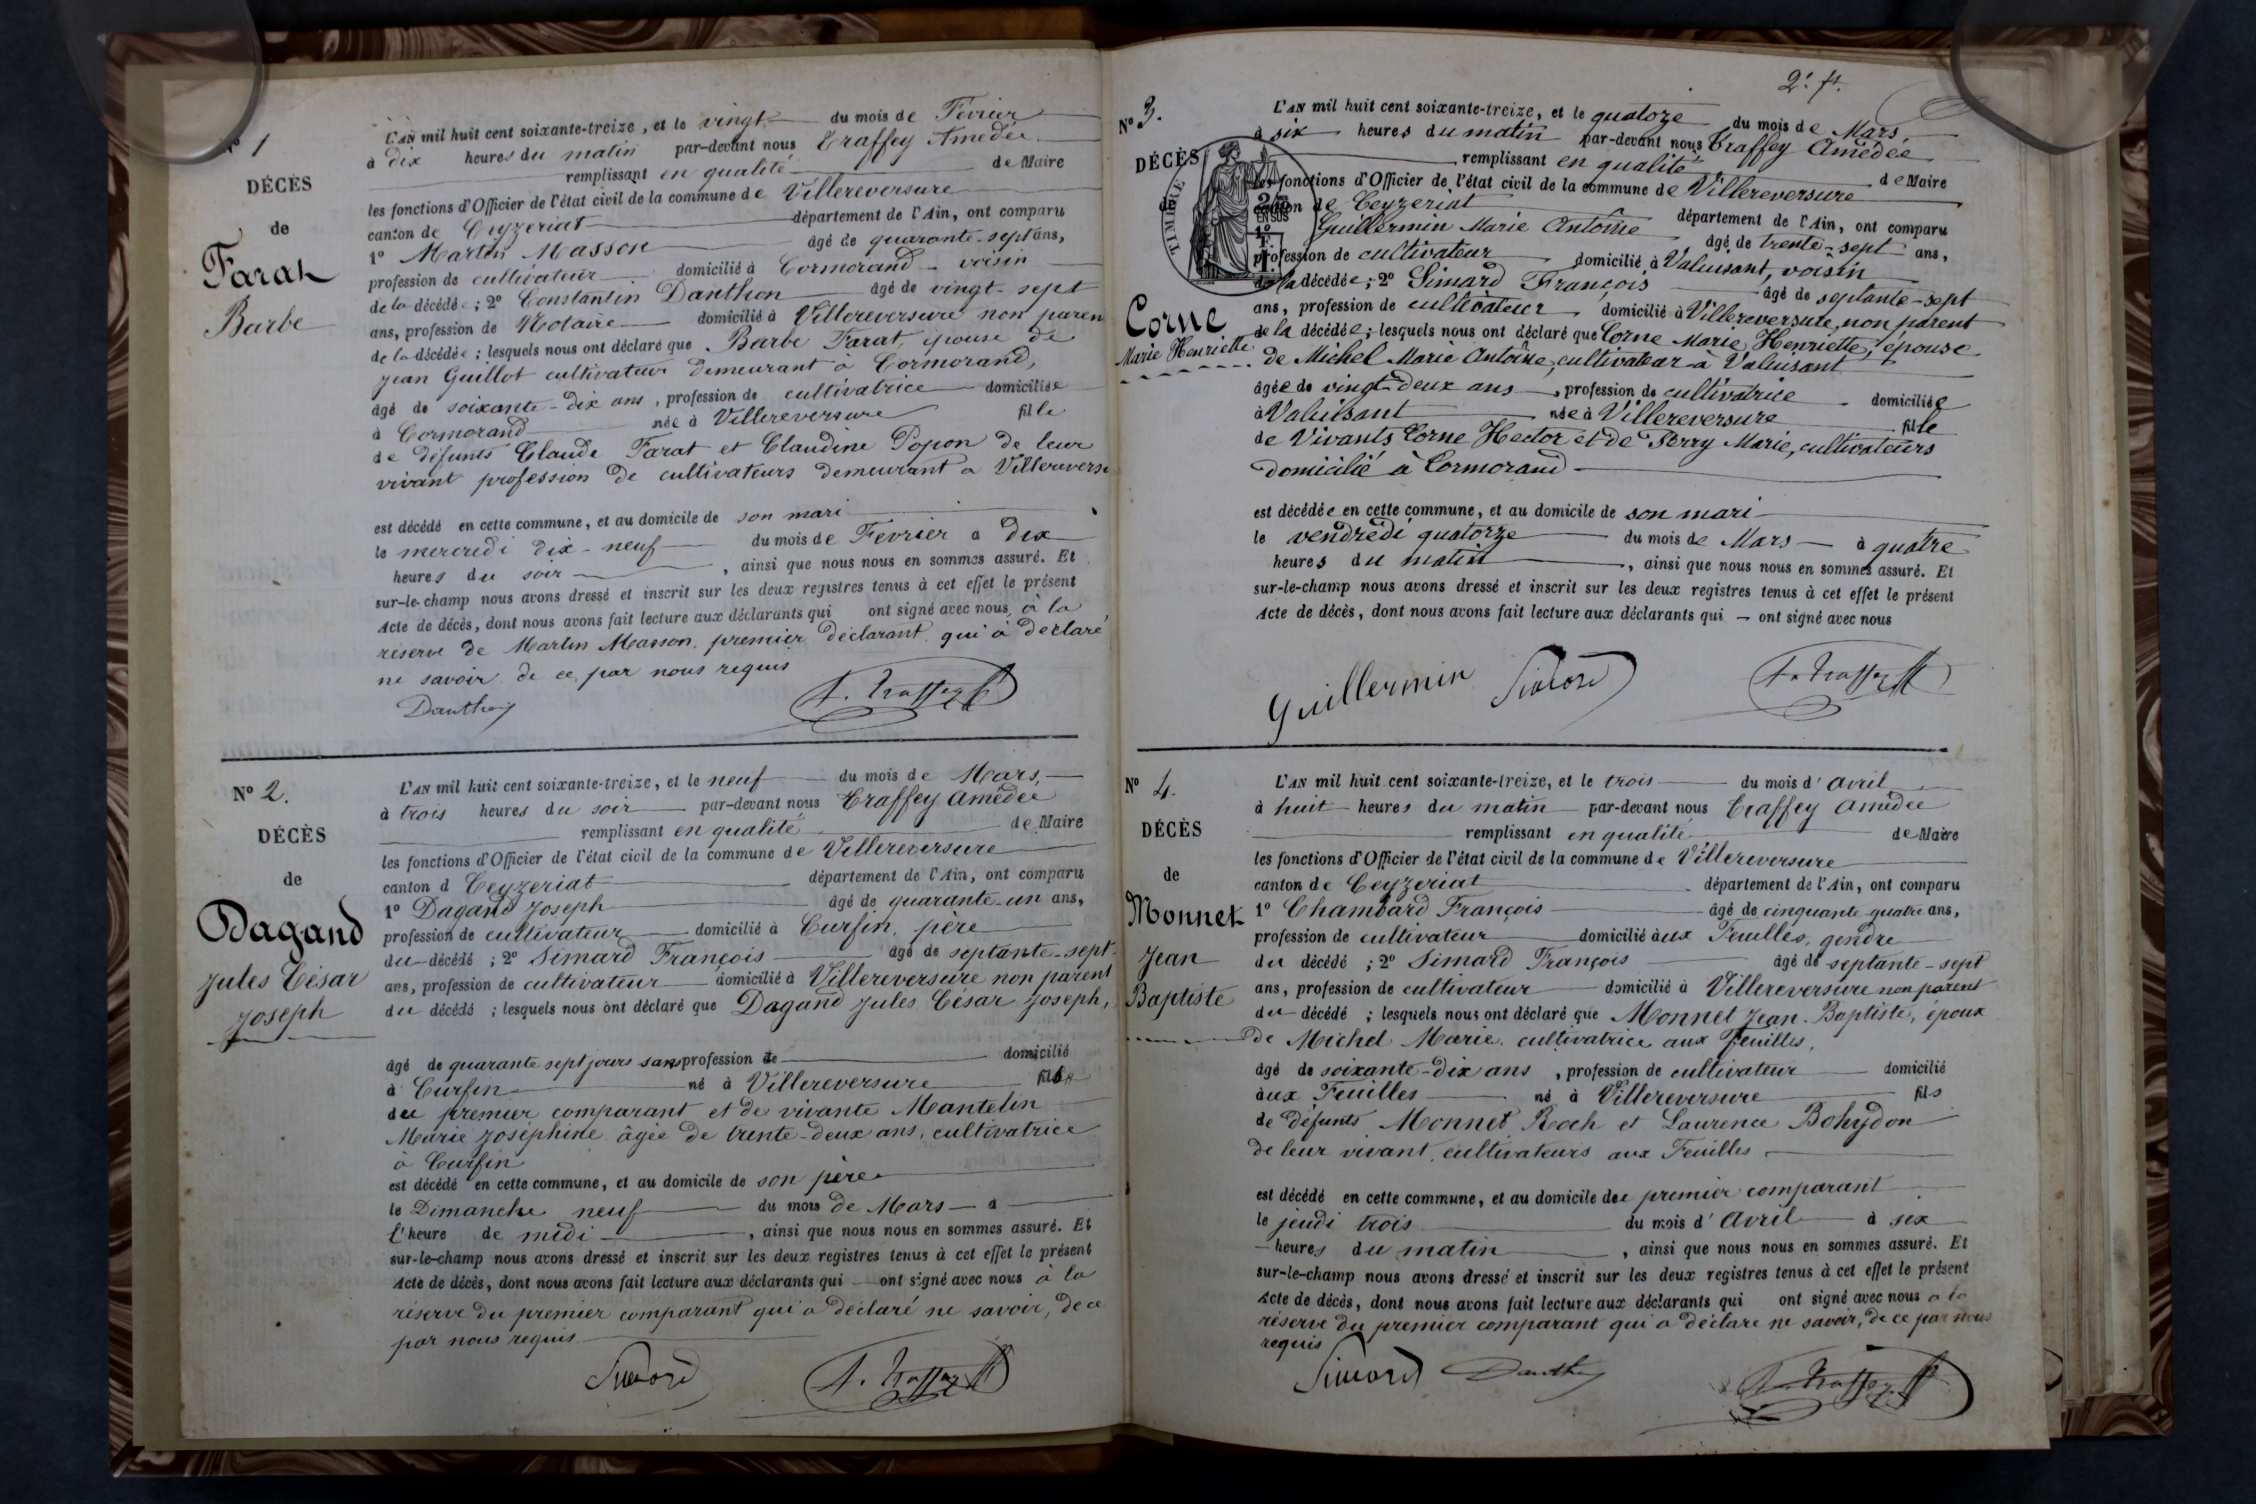 N° 1
DÉCÈS
de
Farat
Barbe
L'AN mil huit cent soixante-treize, et le vingt du mois de Février
à dix heures du matin par-devant nous Traffey Amédée
remplissant en qualité de Maire
les fonctions d'Officier de l'état civil de la commune de Villereversure
canton de Ceyzeriat département de l'Ain, ont comparu
1° Martin Masson âgé de quarante-sept ans,
profession de cultivateur domicilié à Cormorand voisin
de la décédée ; 2° Constantin Danthon âgé de vingt-sept
ans, profession de Notaire domicilié à Villereversure non paren
de la décédée ; lesquels nous ont déclaré que Barbe Farat, épouse de
Jean Guillot cultivateur demeurant à Cormorand,
âgé de soixante-dix ans, profession de cultivatrice domiciliée
à Cormorand née à Villereversure fille
de défunts Claude Farat et Claudine Popon de leur
vivant profession de cultivateurs demeurant à Villereverse
est décédé en cette commune, et au domicile de son mari
le mercredi dix-neuf du mois de Fevrier à dix
heures du soir , ainsi que nous nous en sommes assuré. Et
sur-le-champ nous avons dressé et inscrit sur les deux registres tenus à cet effet le présent
Acte de décès, dont nous avons fait lecture aux déclarants qui ont signé avec nous à la
réserve de Martin Masson, premier déclarant qui à déclaré
ne savoir de ce par nous requis
Danthon
A. Traffey
N° 2.
DÉCÈS
de
Dagand
Jules César
Joseph
L'AN mil huit cent soixante-treize, et le neuf du mois de Mars,
à trois heures du soir par-devant nous Traffey Amédée
remplissant en qualité de Maire
les fonctions d'Officier de l'état civil de la commune de Villereversure
canton d Ceyzeriat département de l'Ain, ont comparu
1° Dagand Joseph âgé de quarante-un ans,
profession de cultivateur domicilié à Curfin, père
du décédé ; 2° Simard François âgé de septante-sept
ans, profession de cultivateur domicilié à Villereversure non parent
du décédé ; lesquels nous ont déclaré que Dagand Jules César Joseph,
âgé de quarante sept jours sans profession de domicilié
à Curfin né à Villereversure fils
du premier comparant et de vivante Mantelin
Marie Joséphine âgée de trente-deux ans, cultivatrice
à Curfin
est décédé en cette commune, et au domicile de son père
le Dimanche neuf du mois de Mars à
l'heure de midi , ainsi que nous nous en sommes assuré. Et
sur-le-champ nous avons dressé et inscrit sur les deux registres tenus à cet effet le présent
Acte de décès, dont nous avons fait lecture aux déclarants qui ont signé avec nous à la
réserve du premier comparant qui a déclaré ne savoir, de ce
par nous requis
Simard
A. Traffey
2e ft.
N° 3.
DÉCÈS
TIMBRE
2/10 EN SUS
Corne
Marie Henriette
L'AN mil huit cent soixante-treize, et le quatoze du mois de Mars,
à six heures du matin par-devant nous Traffey Amédée
remplissant en qualité de Maire
les fonctions d'Officier de l'état civil de la commune de Villereversure
canton de Ceyzeriat département de l'Ain, ont comparu
1° Guillermin Marie Antoine âgé de trente-sept ans,
profession de cultivateur domicilié à Valuisant, voisin
de la décédée ; 2° Simard François âgé de septante-sept
ans, profession de cultivateur domicilié à Villereversure, non parent
de la décédée ; lesquels nous ont déclaré que Corne Marie Henriette, épouse
de Michel Marie Antoine, cultivateur à Valuisant
âgée de vingt-deux ans, profession de cultivatrice domiciliée
à Valuisant née à Villereversure fille
de Vivants Corne Hector et de Serry Marie, cultivateurs
domicilié à Cormorand
est décédée en cette commune, et au domicile de son mari
le vendredi quatorze du mois de Mars à quatre
heures du matin , ainsi que nous nous en sommes assuré. Et
sur-le-champ nous avons dressé et inscrit sur les deux registres tenus à cet effet le présent
Acte de décès, dont nous avons fait lecture aux déclarants qui ont signé avec nous
Guillermin
Simard
A. Traffey
N° 4.
DÉCÈS
de
Monnet
Jean
Baptiste
L'AN mil huit cent soixante-treize, et le trois du mois d'avril
à huit heures du matin par-devant nous Traffey Amédée
remplissant en qualité de Maire
les fonctions d'Officier de l'état civil de la commune de Villereversure
canton de Ceyzeriat département de l'Ain, ont comparu
1° Chambard François âgé de cinquante quatre ans,
profession de cultivateur domicilié aux Feuilles, gendre
du décédé ; 2° Simard François âgé de septante-sept
ans, profession de cultivateur domicilié à Villereversure non parent
du décédé ; lesquels nous ont déclaré que Monnet Jean-Baptiste, époux
de Michel Marie, cultivatrice aux Feuilles,
âgé de soixante-dix ans, profession de cultivateur domicilié
aux Feuilles né à Villereversure fils
de défunts Monnet Roch et Laurence Bohydon
de leur vivant, cultivateurs aux Feuilles
est décédé en cette commune, et au domicile du premier comparant
le jeudi trois du mois d'Avril à six
heures du matin , ainsi que nous nous en sommes assuré. Et
sur-le-champ nous avons dressé et inscrit sur les deux registres tenus à cet effet le présent
Acte de décès, dont nous avons fait lecture aux déclarants qui ont signé avec nous à la
réserve du premier comparant qui a déclaré ne savoir, de ce par nous
requis
Simard
Danthon
A. Traffey